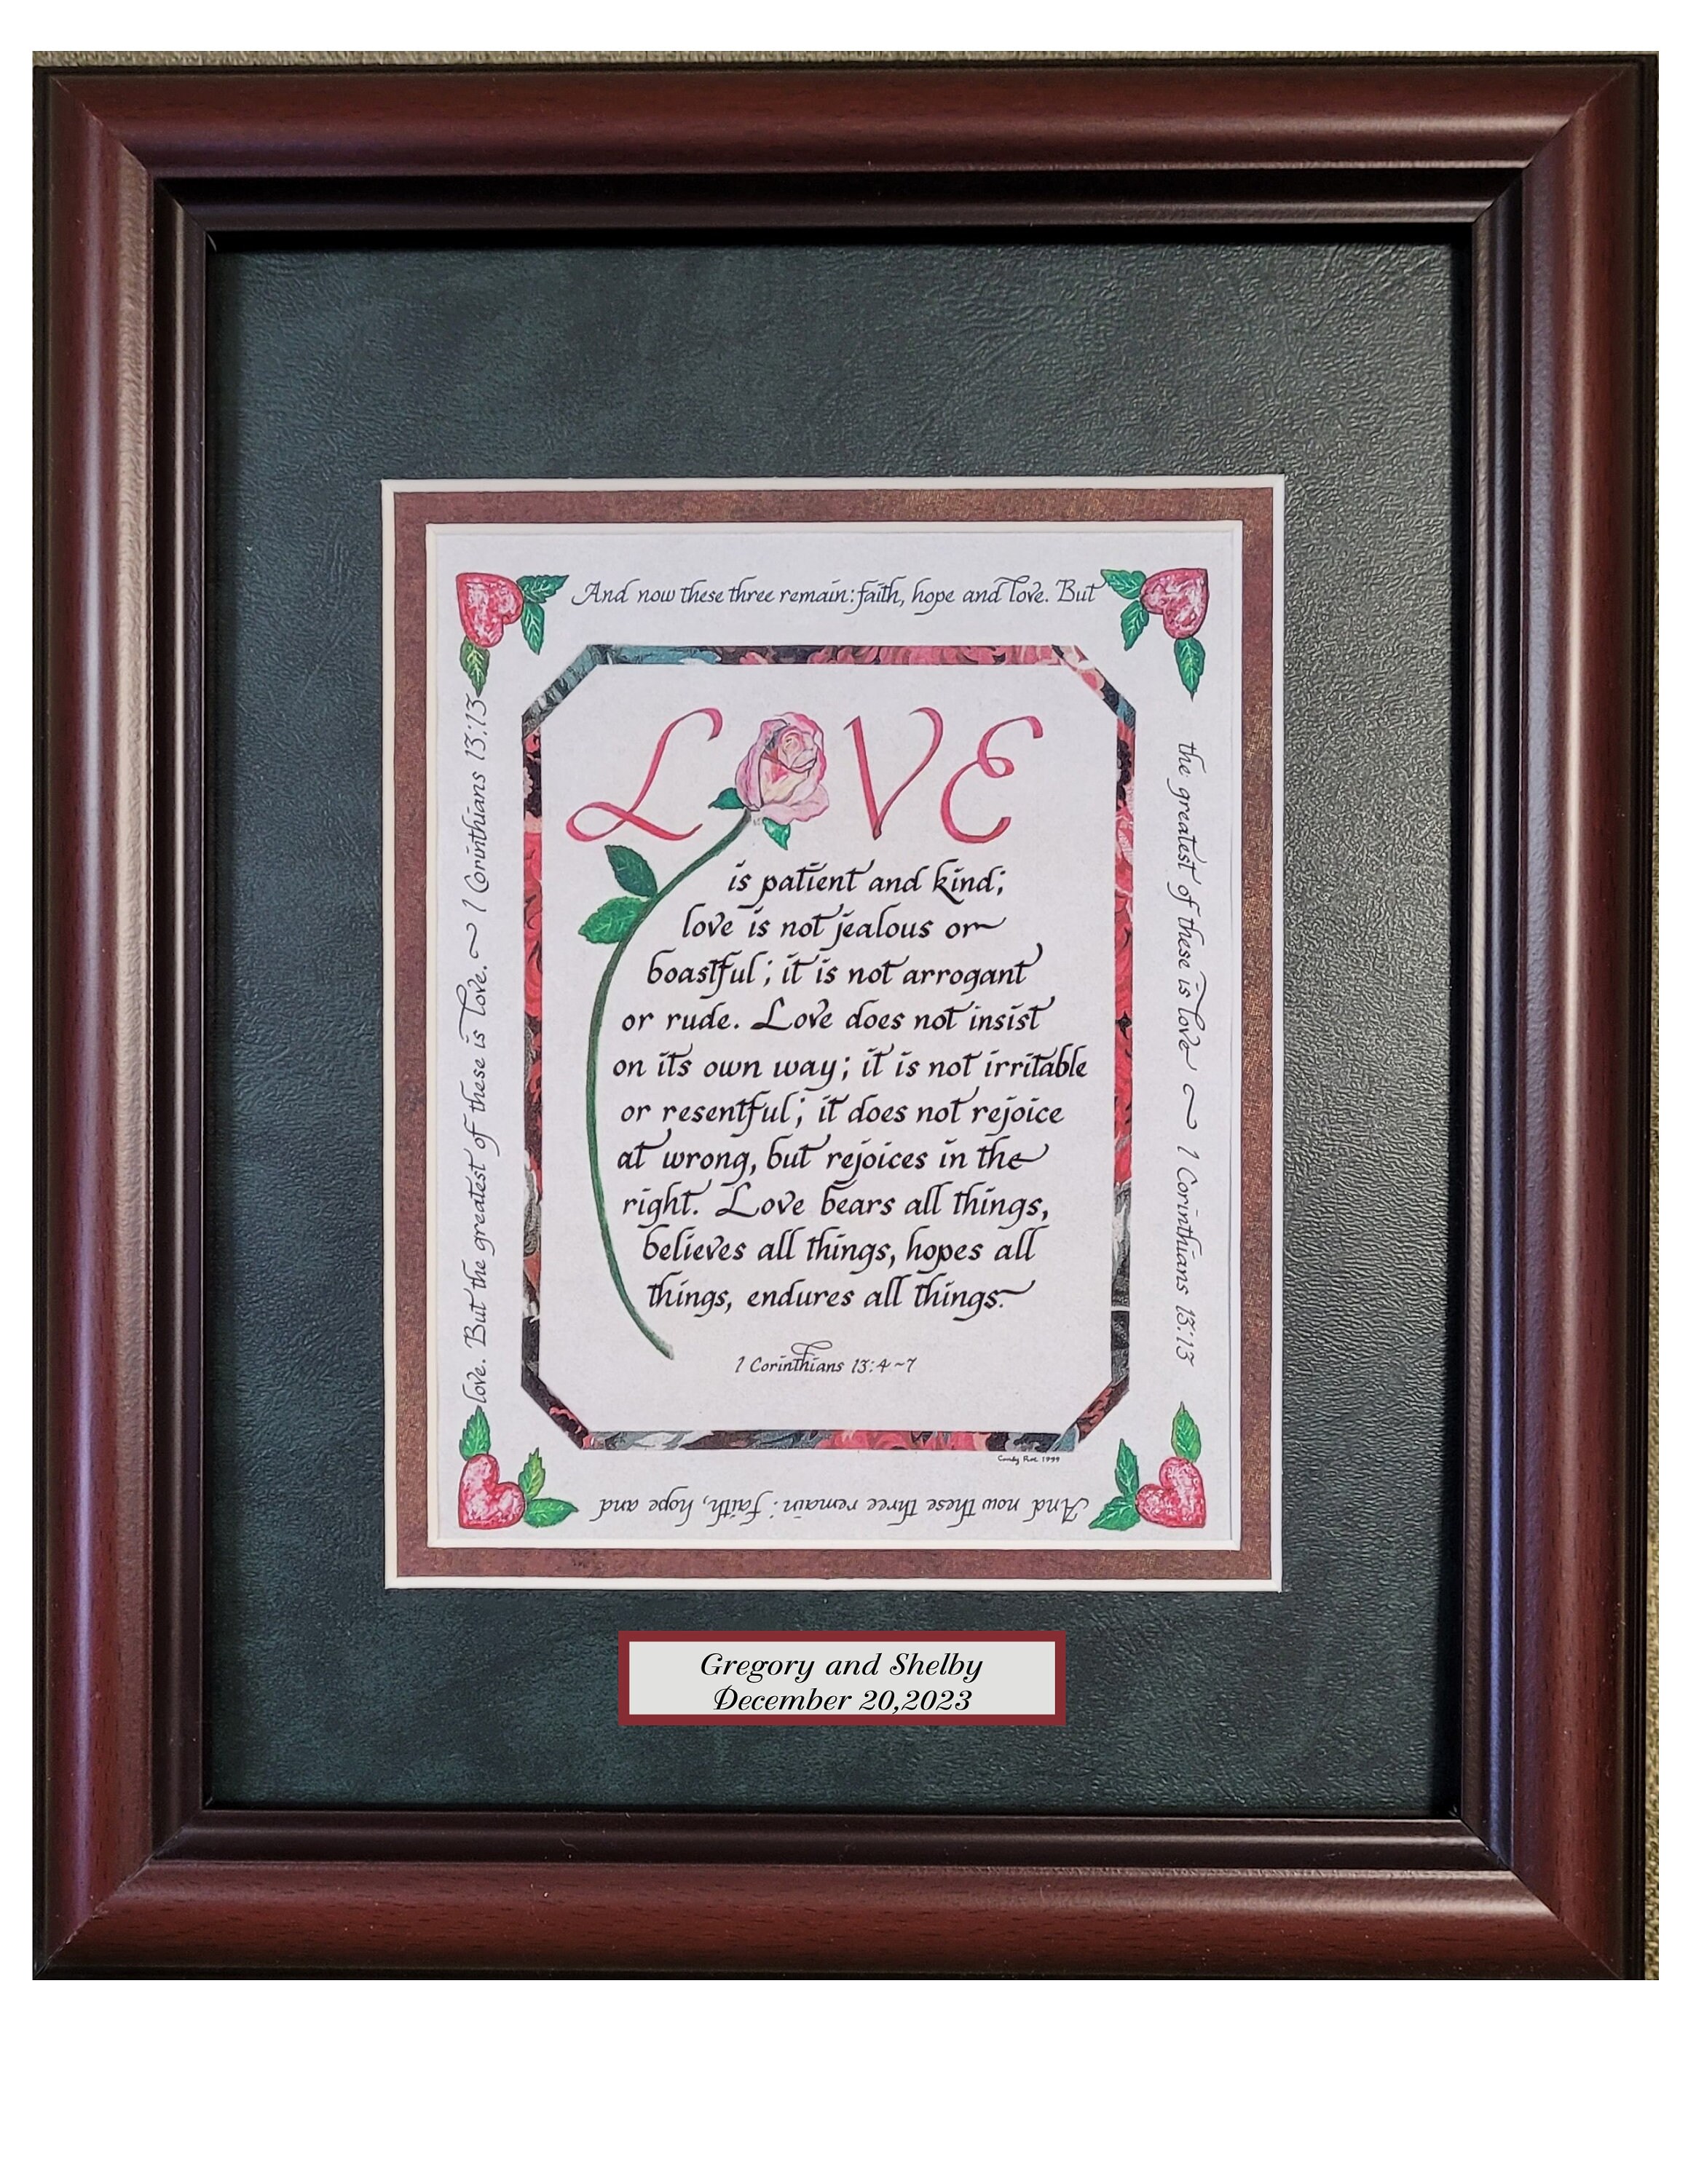 And now these three remain: faith, hope and love. But
the greatest of these is love ~ 1 Corinthians 13:13
And now these three remain: faith, hope and
love. But the greatest of these is love. ~ 1 Corinthians 13:13
LOVE
is patient and kind;
love is not jealous or
boastful; it is not arrogant
or rude. Love does not insist
on its own way; it is not irritable
or resentful; it does not rejoice
at wrong, but rejoices in the
right. Love bears all things,
believes all things, hopes all
things, endures all things.
1 Corinthians 13:4~7
1999
Gregory and Shelby
December 20,2023